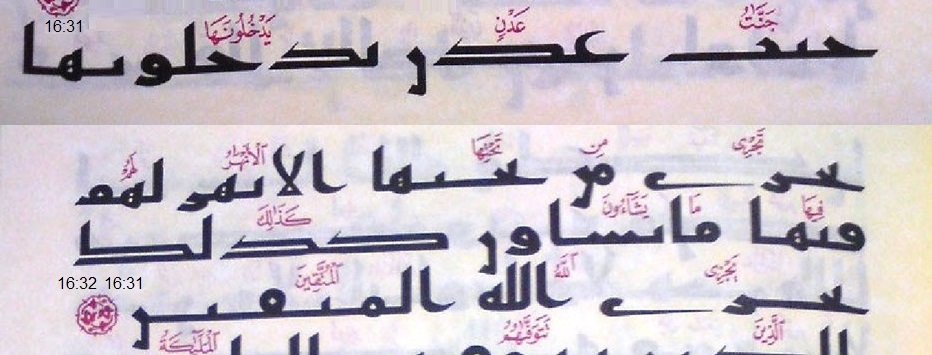 16:31
جَنَّٰتُ عَدْنٍ يَدْخُلُونَهَا
جنت عدن يدخلونها
تَجْرِى مِن تَحْتِهَا ٱلْأَنْهَٰرُ لَهُمْ
تجرى من تحتها الانهر لهم
فِيهَا مَا يَشَآءُونَ كَذَٰلِكَ
فيها ما يشاون كذلك
يَجْزِى ٱللَّهُ ٱلْمُتَّقِينَ
16:31 16:32
يجزى الله المتقين
ٱلَّذِينَ تَتَوَفَّىٰهُمُ ٱلْمَلَٰٓئِكَةُ